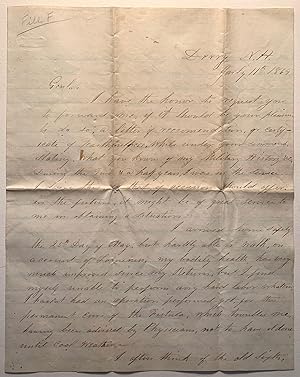 Fill F
Derry N.H.
July 11th 1864
I have the honor to request you
to forward me, if it should be your pleasure
to do so, a letter of recommendation, or certifi-
cate of faithfulness, while under your command
stating what you know of my Military History &c
during the two & a half years, I was in the service
in the future, it might be of great service to
me in obtaining a situation.
I arrived home safely
the 21st day of May, but hardly able to walk, on
account of Lameness, my bodily health has very
much improved since my Return, but I find
myself unable to perform any hard labor whatever
I havent had an operation performed yet for the
permanent cure of the Fistula, which troubles me
having been advised by Physicians, not to have it done
until Cool Weather.
I often think of the old Sixth,